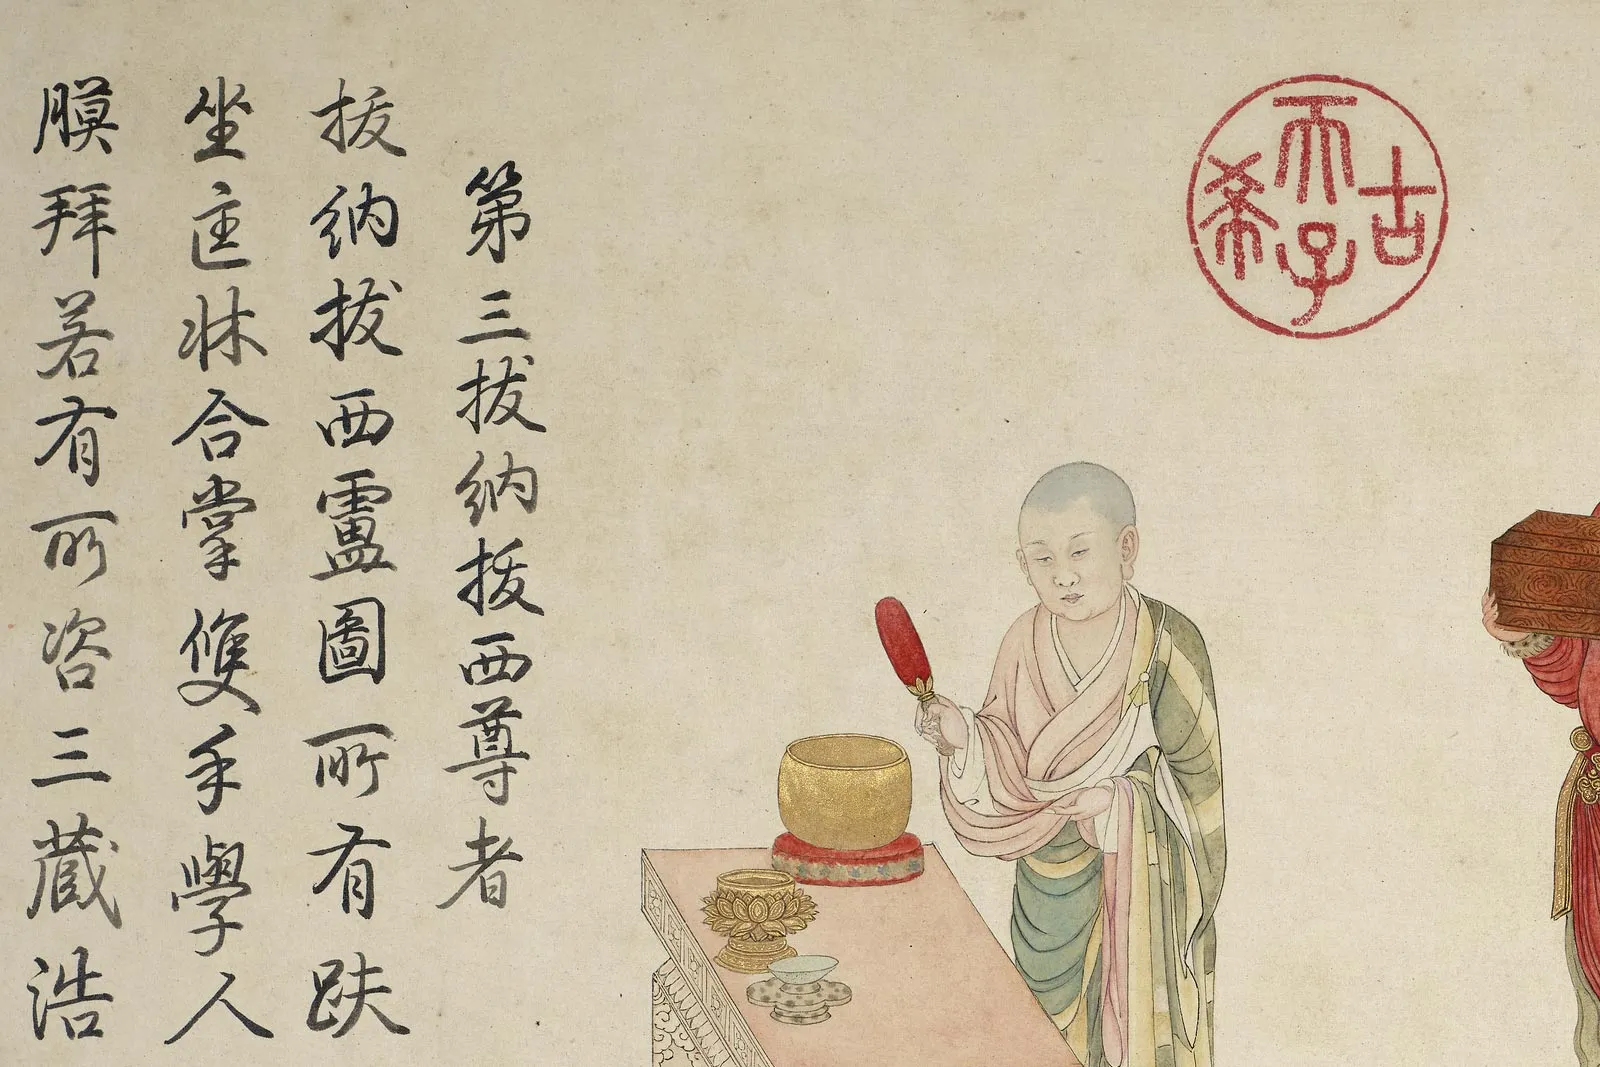 古希天子
第三拔納拔西尊者
拔納拔西盧圖所有趺
坐匡牀合掌雙手學人
膜拜若有所咨三藏浩